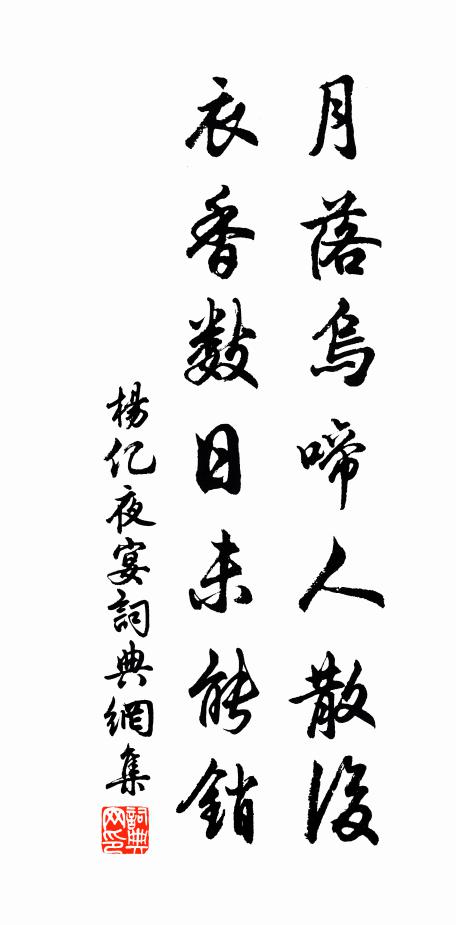 月落烏啼人散後
衣香数日未能銷
楊億夜宴詞典網集
詞典
网印